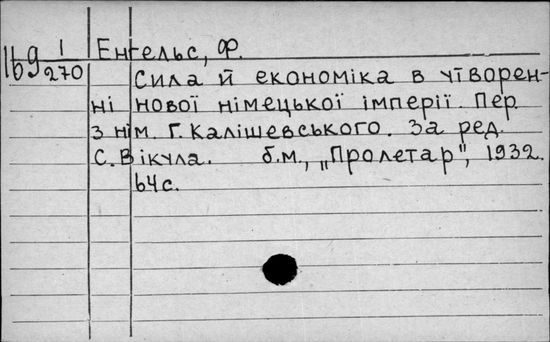 Іб9 1/270
Енгельс, Ф.
Сила й економіка в утворен-
ні нової німецької імперії. Пер
з нім. Г. Калішевського. За ред.
С. Вікула. б.м., „Пролетар", 1932.
64с.